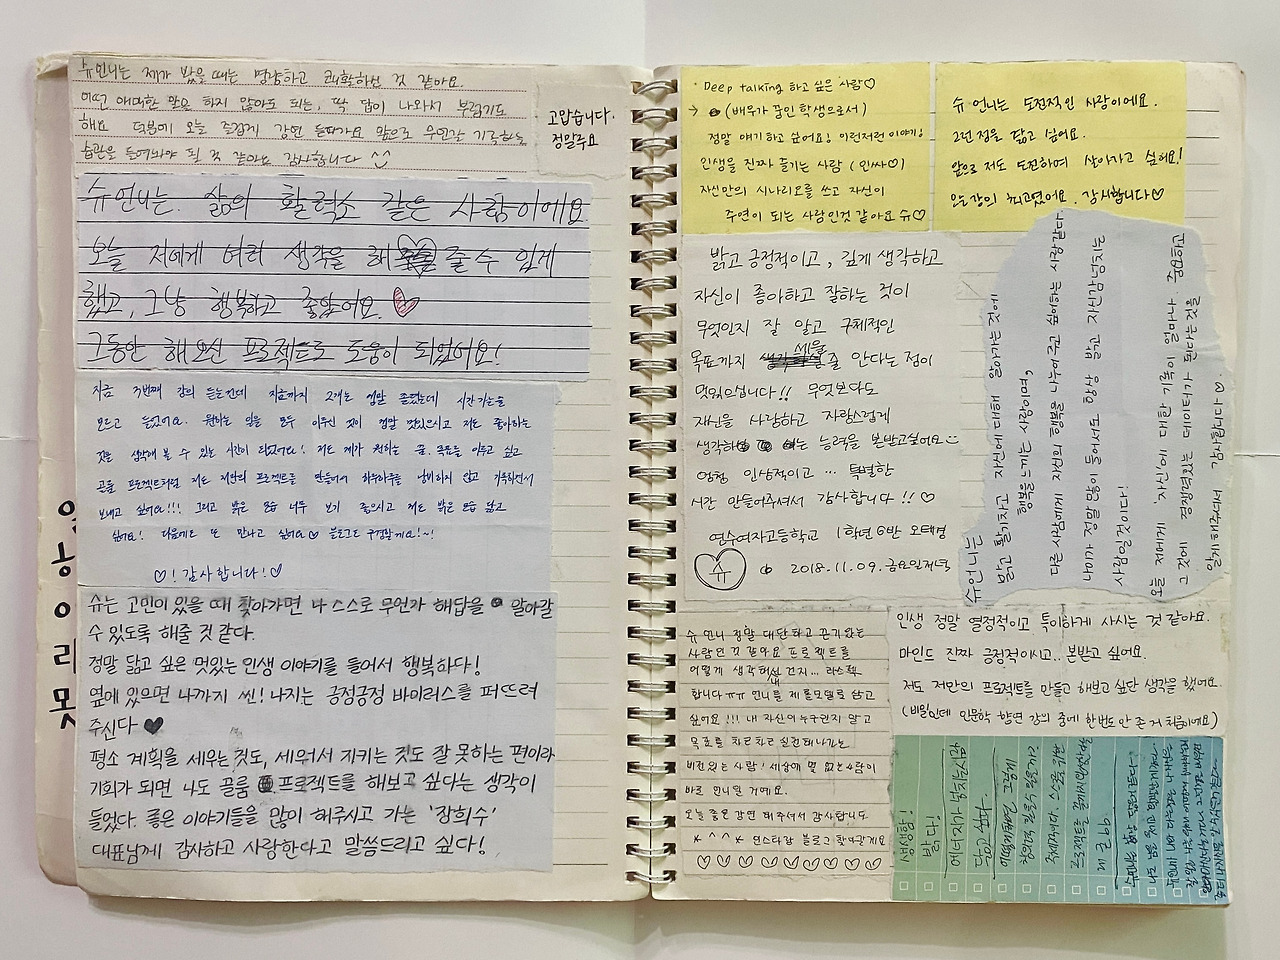 슈언니는 제가 봤을 때는 명랑하고 쾌활하신 것 같아요.
어떤 애매한 말은 하지 않아도 되는, 딱 답이 나와서 부럽기도
해요 덕분에 오늘 즐겁게 강연 듣다가요 앞으로 무언갈 기록하는
습관을 들여놔야 될 것 같아요 감사합니다 ^^
고맙습니다.
정말루요
슈언니는. 삶의 활력소 같은 사람이에요
오늘 저에게 여러 생각을 해 줄 수 있게
했고, 그냥 행복하고 좋았어요. ♡
그동안 해오신 프로젝트도 도움이 되었어요!
지금 3번째 강의 듣는건데 지금까지 2개는 정말 졸렸는데 시간가는줄
모르고 들었어요. 원하는 일을 모두 이루신 것이 정말 멋있으시고 저도 좋아하는
것을 생각해 볼 수 있는 시간이 되었어요! 저도 제가 원하는 꿈. 목표를 이루고 싶고
끌룸 프로젝트처럼 저도 저만의 프로젝트를 만들어서 하루하루를 낭비하지 않고 기록하면서
보내고 싶어요!!! 그리고 밝은 모습 너무 보기 좋으시고 저도 밝은 모습 닮고
싶어요! 다음에도 또 만나고 싶어요♡ 블로그도 구경할게요!~!
♡! 감사합니다!♡
슈는 고민이 있을 때 찾아가면 나 스스로 무언가 해답을 알아갈
수 있도록 해줄 것 같다.
정말 닮고 싶은 멋있는 인생 이야기를 들어서 행복하다!
옆에 있으면 나까지 씬! 나지는 긍정긍정 바이러스를 퍼뜨려
주신다 ♥
평소 계획을 세우는 것도, 세워서 지키는 것도 잘 못하는 편이라
기회가 되면 나도 끌룸 프로젝트를 해보고 싶다는 생각이
들었다. 좋은 이야기들을 많이 해주시고 가는 '장희수'
대표님께 감사하고 사랑한다고 말씀드리고 싶다!
· Deep talking 하고 싶은 사람♡
→ (배우가 꿈인 학생으로서)
정말 얘기하고 싶어요! 이런저런 이야기!
인생을 진짜 즐기는 사람 (인싸♡)
자신만의 시나리오를 쓰고 자신이
주연이 되는 사람인것 같아요 슈♡
슈 언니는 도전적인 사람이에요.
그런 점을 닮고 싶어요.
앞으로 저도 도전하며 살아가고 싶어요!
오늘 강의 최고였어요. 감사합니다♡
밝고 긍정적이고, 깊게 생각하고
자신이 좋아하고 잘하는 것이
무엇인지 잘 알고 구체적인
목표까지 세울 줄 안다는 점이
멋있으십니다!! 무엇보다도
자신을 사랑하고 자랑스럽게
생각하는 능력을 본받고싶어요
엄청 인상적이고 … 특별한
시간 만들어주셔서 감사합니다!! ♡
연수여자고등학교 1학년 6반 오태경
슈 2018.11.09. 금요일저녁
슈언니는
밝고 활기차고 자신에 대해 알아가는 것에
행복을 느끼는 사람이며,
다른 사람에게 자신의 행복을 나누어주고 싶어하는 사람같다.
나이가 정말 많이 들어서도 항상 지금과 같이 자신감 넘치는
사람일것이다!
오늘 저에게, '자신'에 대한 기록이 얼마나 중요하고
그것에 경쟁력있는 데이터가 된다는 것을
알게 해주셔서 감사합니다!♡
슈 언니 정말 대단하고 끈기있는
사람인 것 같아요 프로젝트를
어떻게 생각해내신 건지… 리스펙
합니다 ㅠㅠ 언니를 제 롤모델로 삼고
싶어요!!! 내 자신이 누구인지 알고
목표를 차근차근 실천해나가는
비전있는 사람! 세상에 몇 없는 사람이
바로 언니일 거예요.
오늘 좋은 강연 해주셔서 감사합니다
* ^^ * 인스타랑 블로그 할게요
♡♡♡♡♡♡♡♡♡
인생 정말 열정적이고 특이하게 사시는 것 같아요.
마인드 진짜 긍정적이시고.. 본받고 싶어요.
저도 저만의 프로젝트를 만들고 해보고 싶단 생각을 했어요.
(비밀인데 인문학 향연 강의 중에 한번도 안 존 거 처음이에요)
생명함!
밝다!
에너지가 넘치는 사람
닮고 싶다.